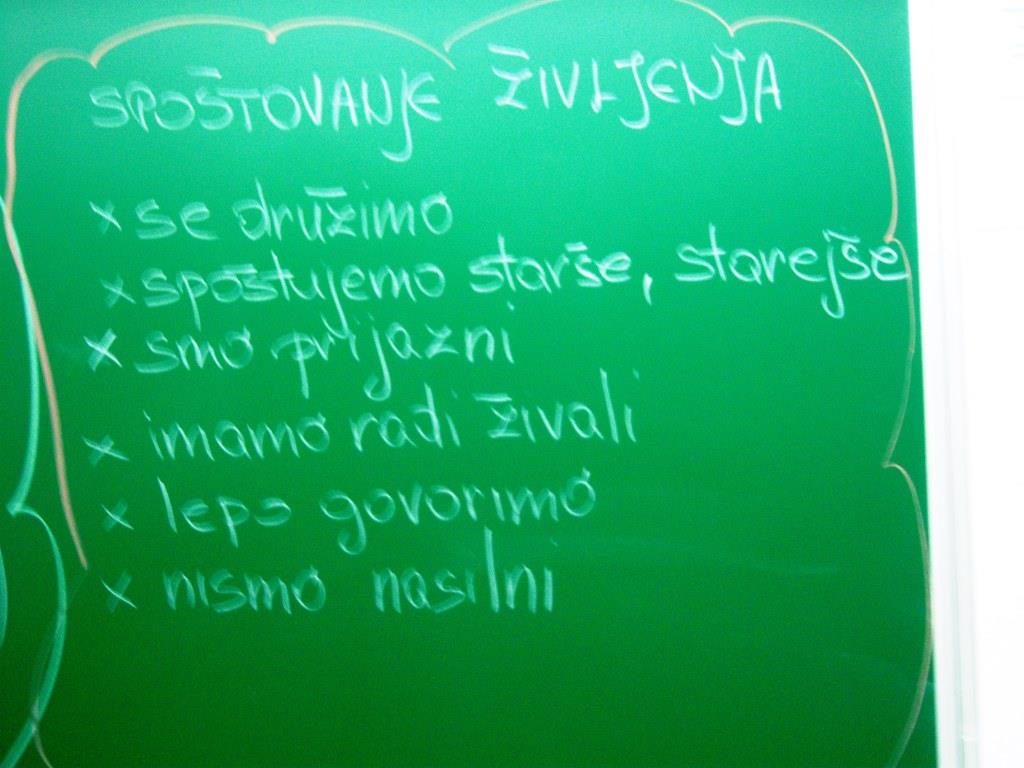 SPOŠTOVANJE ŽIVLJENJA
× se družimo
× spoštujemo starše, starejše
× smo prijazni
× imamo radi živali
× lepo govorimo
× nismo nasilni